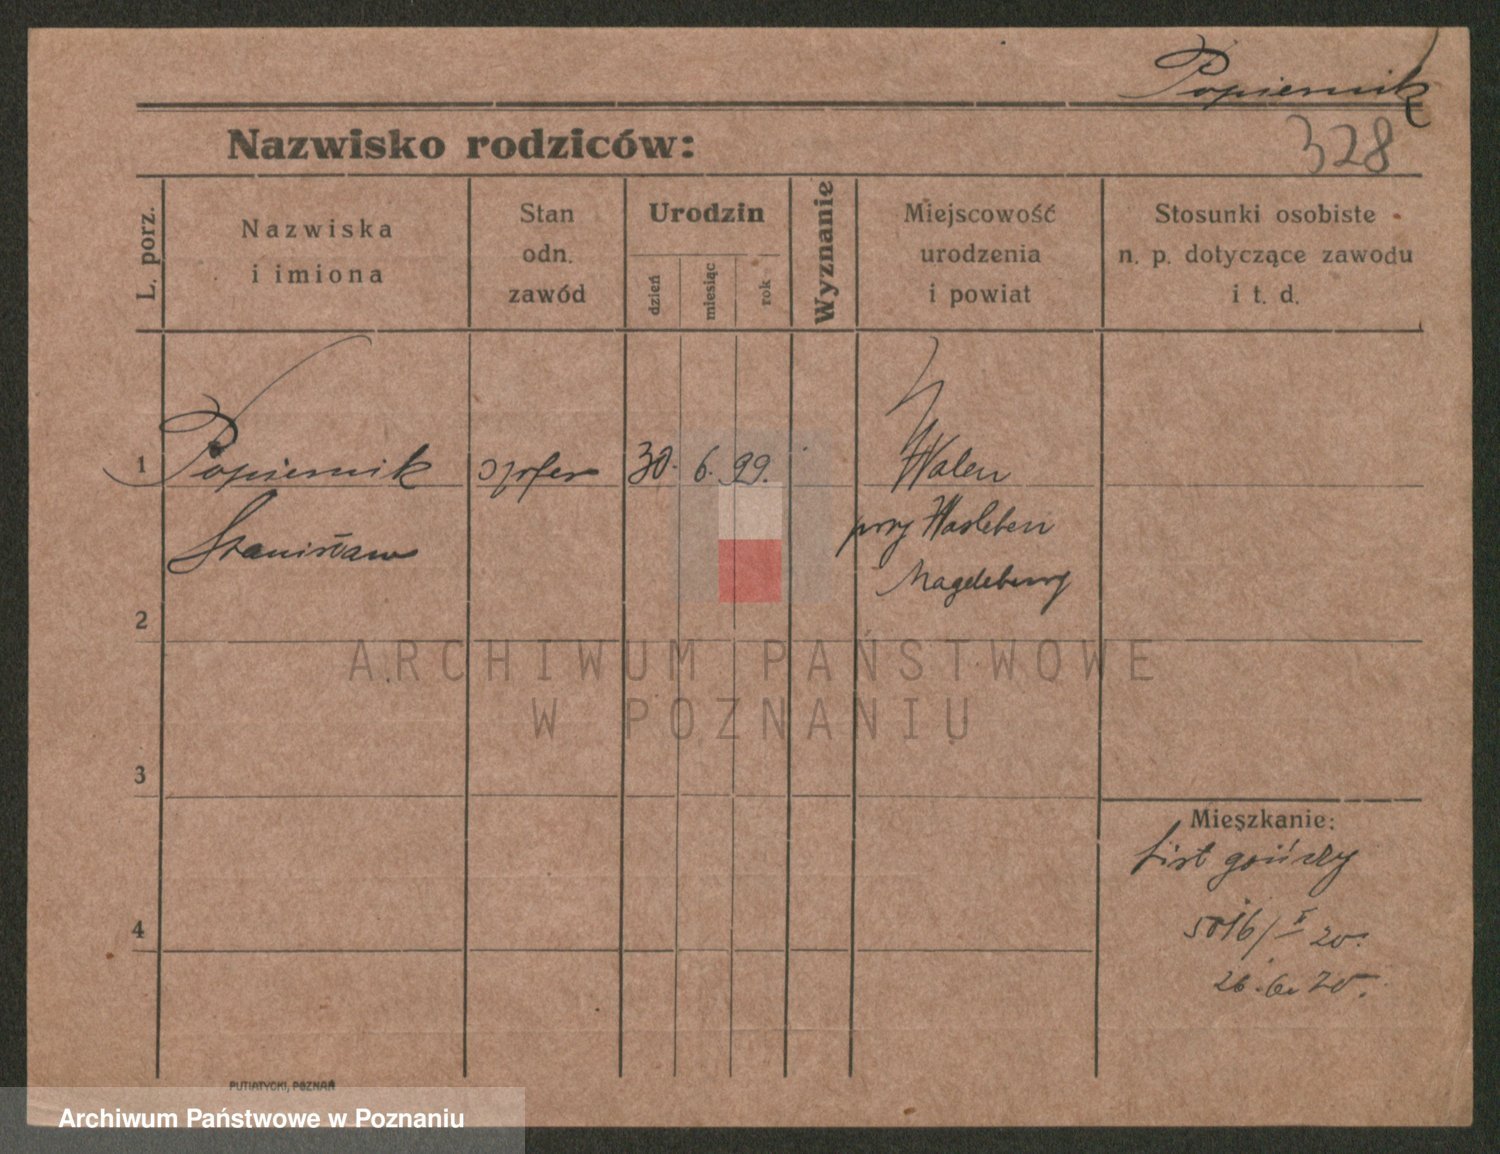 Popiernik
Nazwisko rodziców:
328
L. porz.
Nazwiska
i imiona
Stan
odn.
zawód
Urodzin
dzień
miesiąc
rok
Wyznanie
Miejscowość
urodzenia
i powiat
Stosunki osobiste
n. p. dotyczące zawodu
i t. d.
1
Popiernik
szofer
30. 6. 99.
Walen
Stanisław
przy Hasleben
Magdeburg
2
ARCHIWUM PAŃSTWOWE
W POZNANIU
3
Mieszkanie:
List gończy
4
5016/ 20.
26. 6. 20.
PUTIATYCKI, POZNAŃ
Archiwum Państwowe w Poznaniu